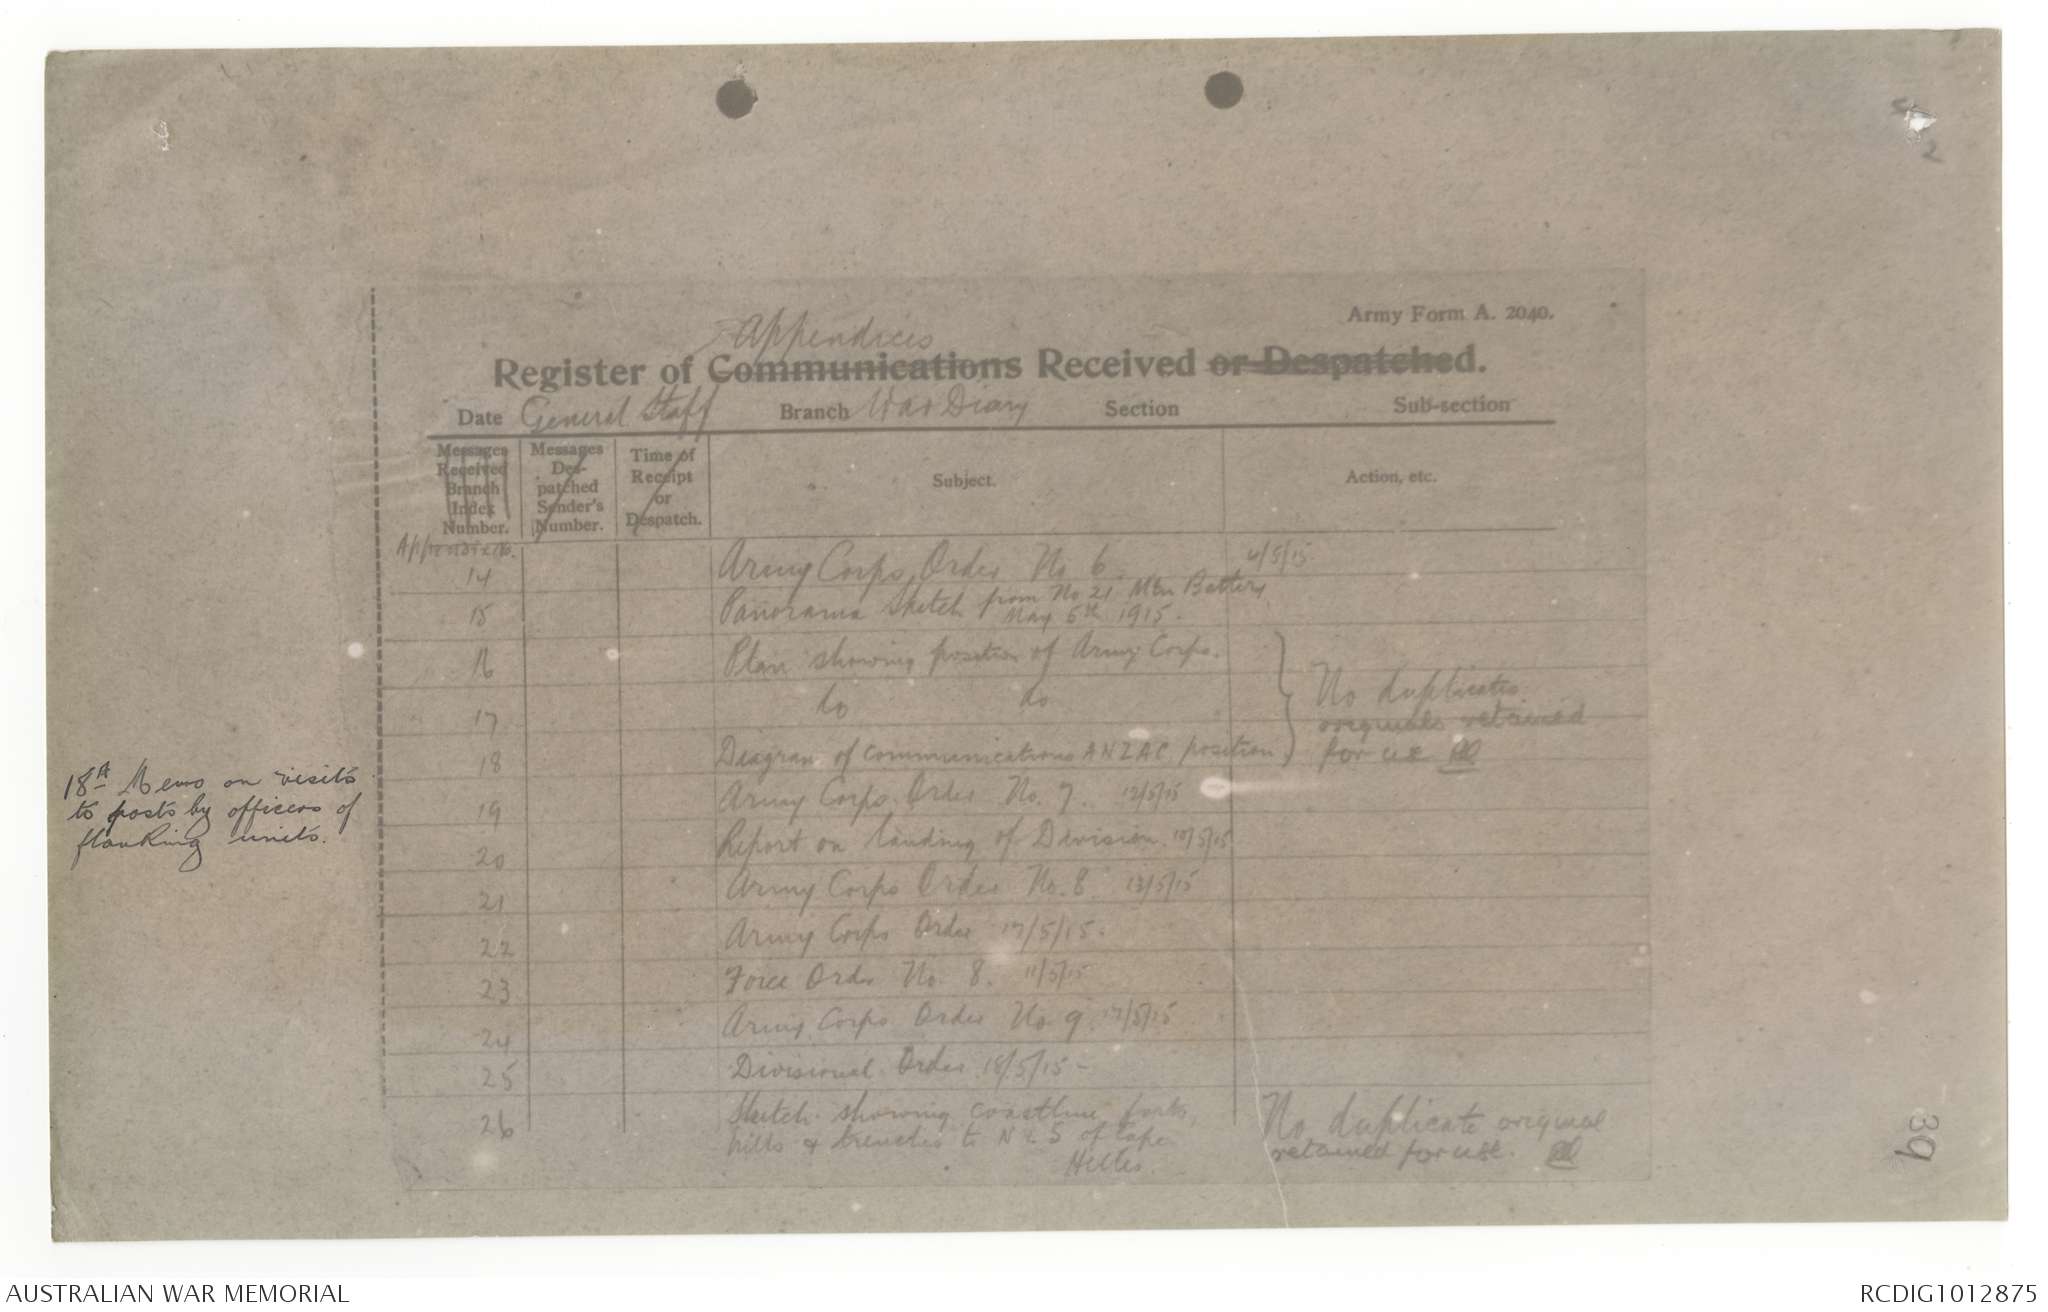 2
Army Form A. 2040.
Appendices
Register of Communications Received or Despatched.
Date General Staff Branch War Diary Section Sub-section
Messages Received Branch Index Number.
Messages Des-patched Sender's Number.
Time of Receipt or Despatch.
Subject.
Action, etc.
Appendix No.
14 Army Corps Order No 6. 4/5/15.
15 Panorama Sketch from No 21 Mtn Battery
May 6th 1915.
16 Plan showing position of Army Corps.
17 do do
No duplicates
originals retained
for use
18 Diagram of communications ANZAC position
18A Memo on visits
to posts by officers of
flanking units.
19 Army Corps Order No 7. 12/5/15
20 Report on landing of Division. 10/5/15
21 Army Corps Order No. 8 13/5/15
22 Army Corps Order 17/5/15.
23 Force Order No. 8. 11/5/15
24 Army Corps Order No 9 17/5/15
25 Divisional Order 18/5/15 -
26 Sketch showing coastline forts,
hills & trenches to N & S of Cape
Helles.
No duplicate original
retained for use.
39
AUSTRALIAN WAR MEMORIAL
RCDIG1012875